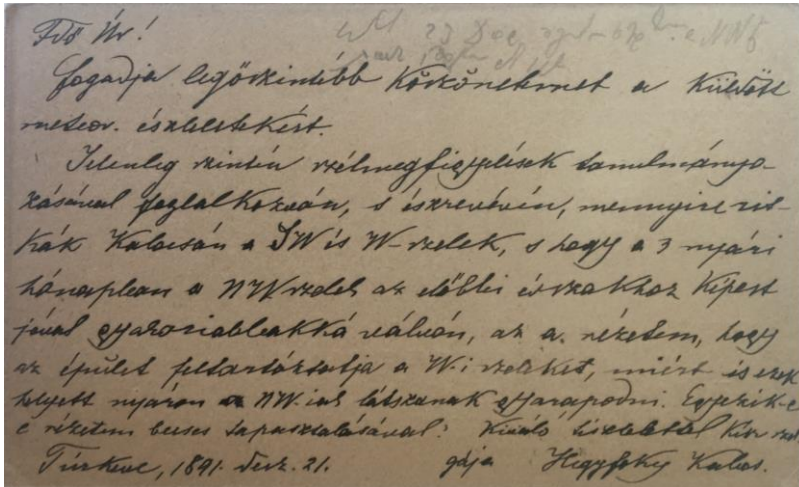 Fdő Úr!
23 Dec.
fogadja legőszintébb köszönetemet a küldött
meteor. észleletekért.
Jelenleg szintén szélmegfigyelések tanulmányo-
zásával foglalkozván, s észrevévén, mennyire rit-
kák Kalocsán a SW és W-szelek, s hogy a 3 nyári
hónapban a NW szelek az előbbi évszakhoz képest
jóval gyakoriabbakká válván, az a nézetem, hogy
az épület feltartóztatja a W.i szeleket, miért is ezek
helyett nyáron a NW.iek látszanak gyarapodni. Egyezik-e
e nézetem becses tapasztalásával? Kiváló tisztelettel kész szol
Túrkeve, 1891. desz. 21. gája Hegyfoky Kabos.